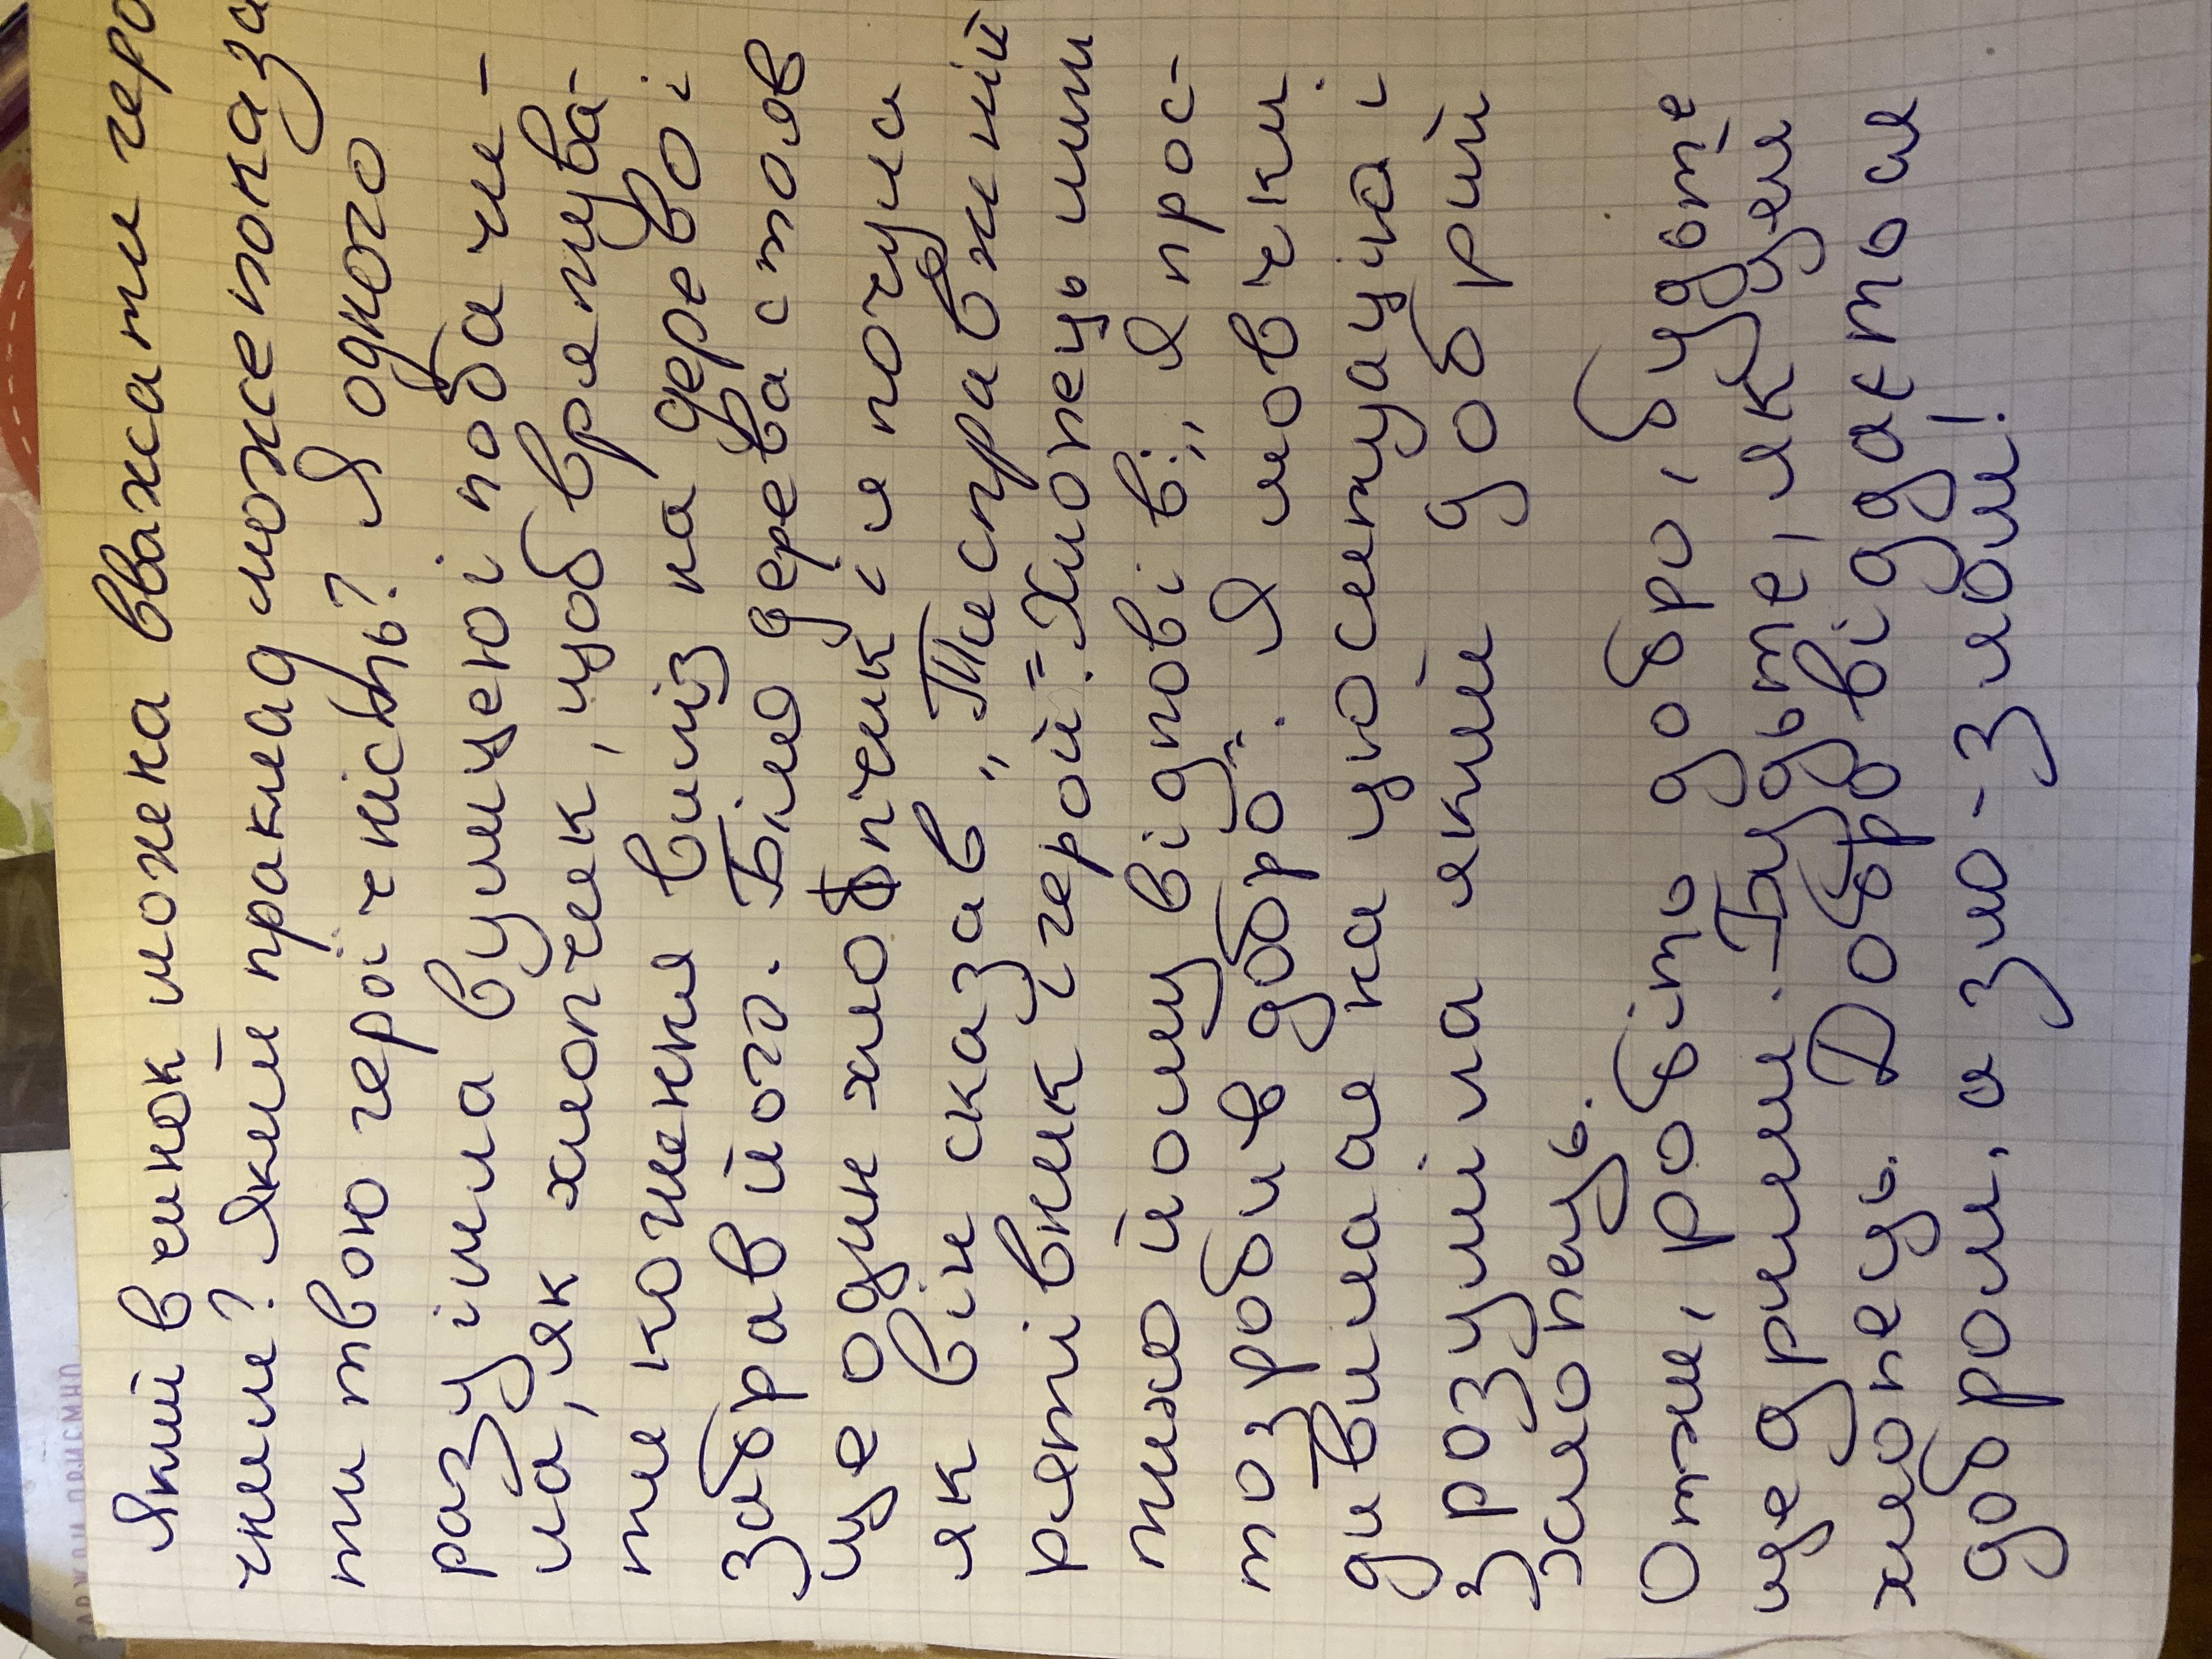 Який вчинок можна вважати геро
чним? Який приклад може показа
ти твою героїчність? Я одного
разу йшла вулицею і побачи-
ла, як хлопчик, щоб врятува-
ти кошеня виліз на дерево і
забрав його. Біля дерева стояв
ще один хлопчик і я почула
як він сказав „Ти справжній
рятівник і герой". Хлопець ми
тихо йому відповів: „Я прос-
то зробив добро". Я мовчки
дивилася на цю ситуацію і
зрозуміла який добрий
хлопець.
Отже, робіть добро, будьте
щедрими. Будьте, як цей
хлопець. Добро віддається
добром, а зло - злом!